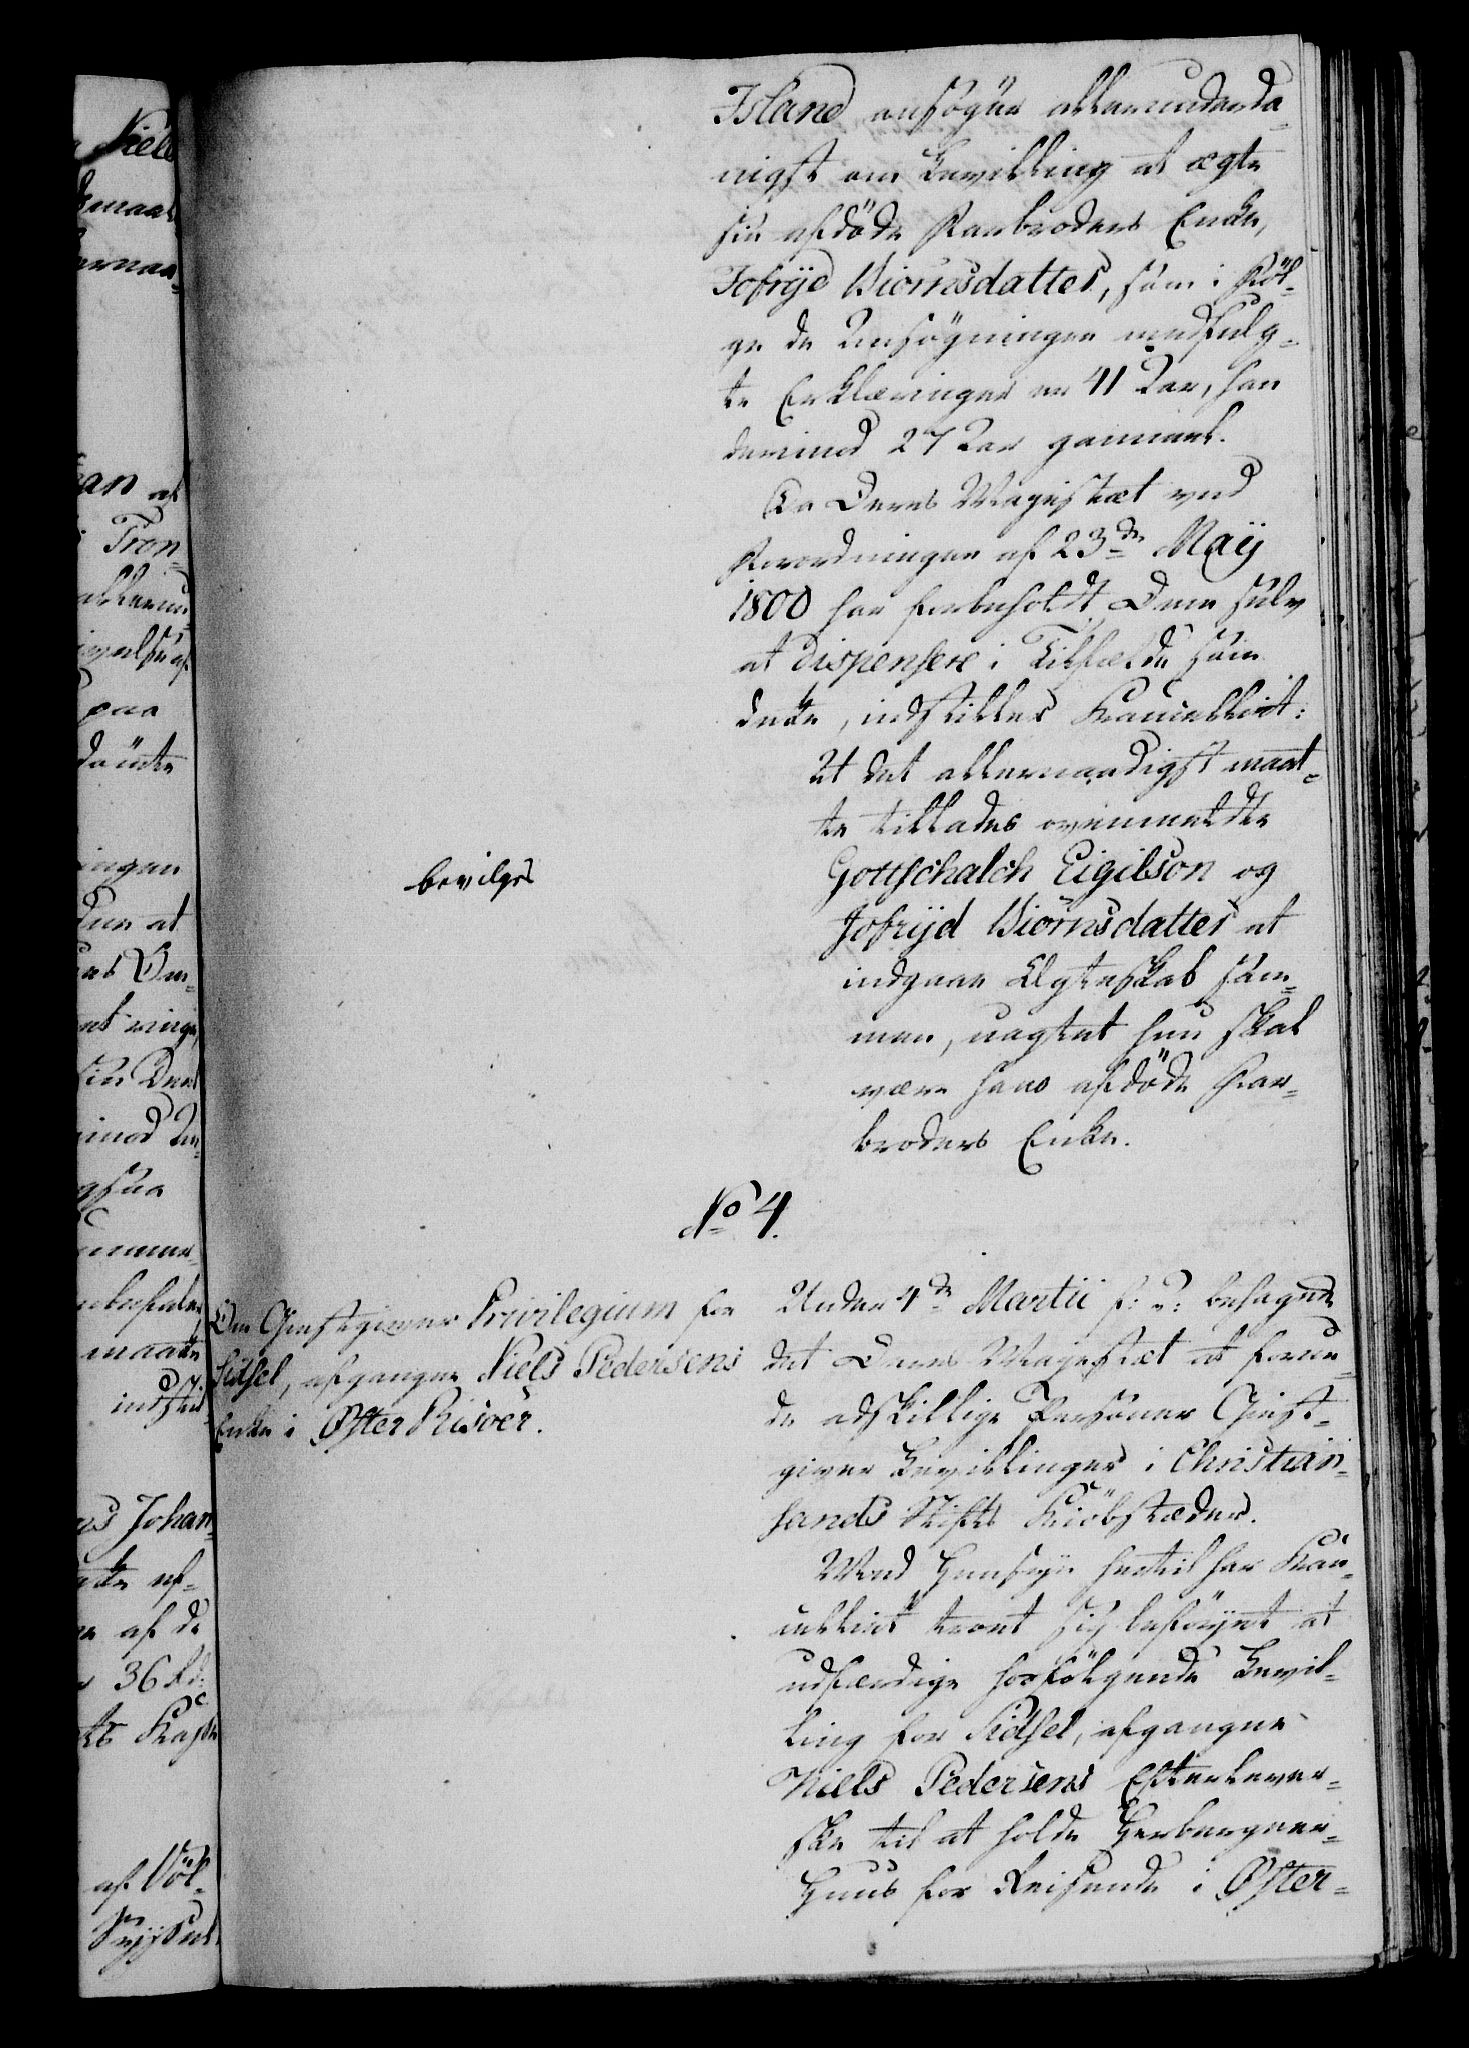 Island ansøger allerunderda-
nigst om Bevilling at ægte
sin afdøde Farbroders Enke,
Jofryd Biornsdatter, som i Føl-
ge de Ansøgningen medfulg-
te Erklæringer er 41 Aar, han
derimod 27 Aar gammel.
Da Deres Majestæt ved
Forordningen af 23de Maÿ
1800 har forbeholdt Dem selv
at dispensere i Tilfælde som
dette, indstiller Kancelliet:
At det allernaadigst maat-
te tillades ovenmeldte
bevilges
Gottschalch Eigilson og
Jofrÿd Biörnsdatter at
indgaae Ægteskab sam-
men, uagtet hun skal
være hans afdøde Far-
broders Enke.
No 4.
Om Giestgiver Privilegium for
Sidsel, afgangne Niels Pedersens
Enke i Øster Risöer.
Under 4de Martii f: A: behagede
det Deres Majestæt at forun-
de adskillige Personer Giest-
giver Bevillinger i Christian-
sands Stifts Kiöbstæder.
Med Hensyn hertil har Kan-
celliet troet sig beføyet at
udfærdige hosfølgende Bevil-
ling for Sidsel, afgangne
Niels Pedersens Efterlever-
ske til at holde Herbergeer-
Huus for Reisende i Øster-